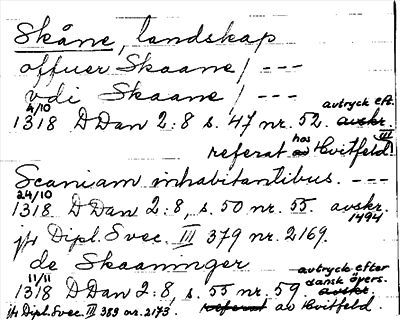 Skåne, landskap
offuer Skaane / ---
vdi Skaane / ---
4/10 avtryck eft.
1318 D Dan 2:8 s. 47 nr. 52. avskr. III
referat hos av Hvitfeld!
Scaniam inhabitantibus. ---
24/10
1318 D Dan 2:8, s. 50 nr. 55. avskr. 1494
jfr Dipl. Svec. III 379 nr. 2169.
de Skaaninger
11/11 avtryck efter dansk övers.
1318 D Dan 2:8, s. 55 nr. 59. avskr.
jfr Dipl. Svec. III 389 nr. 2173. referat av Hvitfeld.